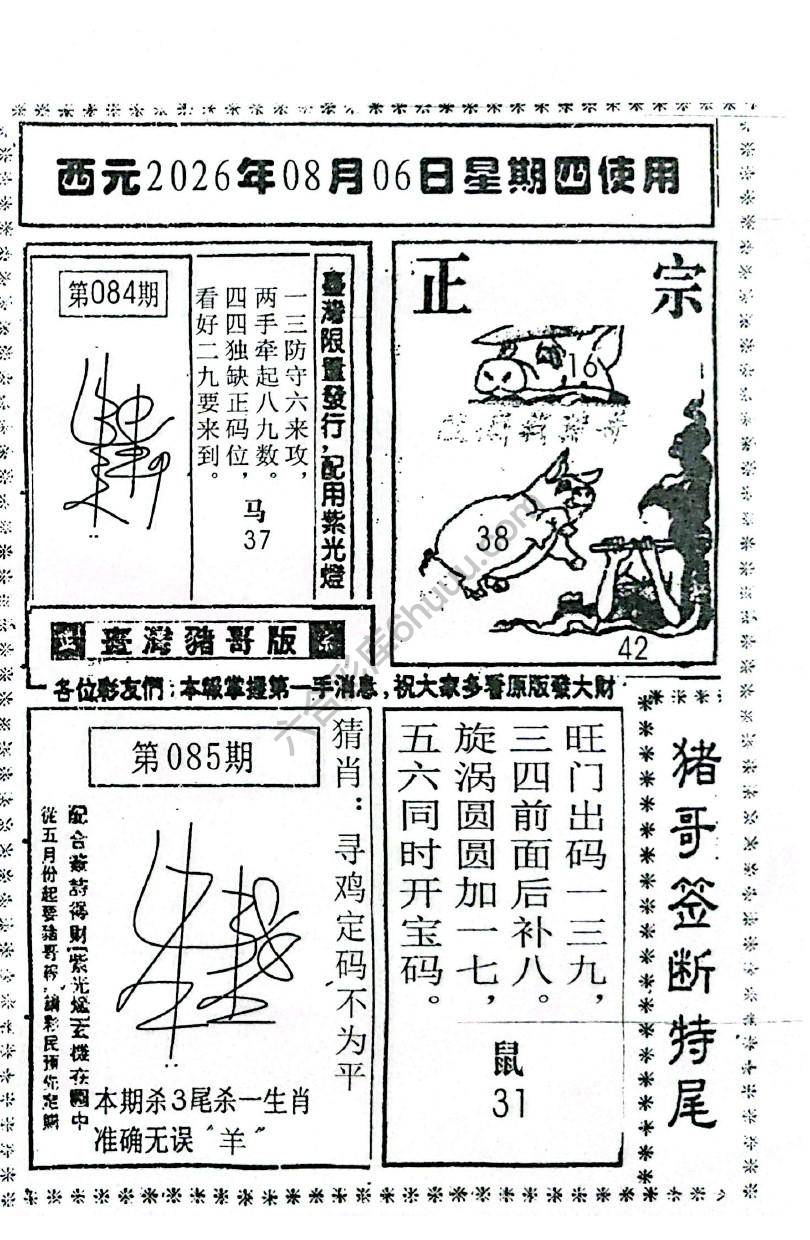 西元2026年08月06日星期四使用
第084期
臺灣限量發行,配用紫光燈
一三防守六来攻,
两手牵起八九数。
四四独缺正码位,
看好二九要来到。
马
37
正宗
16
38
42
臺灣豬哥版
各位彩友們:本報掌握第一手消息,祝大家多看原版發大財
第085期
猜肖:寻鸡定码不为平
從五月份起要豬哥報,請彩民預先定購
本期杀3尾杀一生肖
准确无误“羊”
旺门出码一三九,
三四前面后补八。
旋涡圆圆加一七,
五六同时开宝码。
鼠
31
猪哥签断特尾
六合彩库6huuu.com